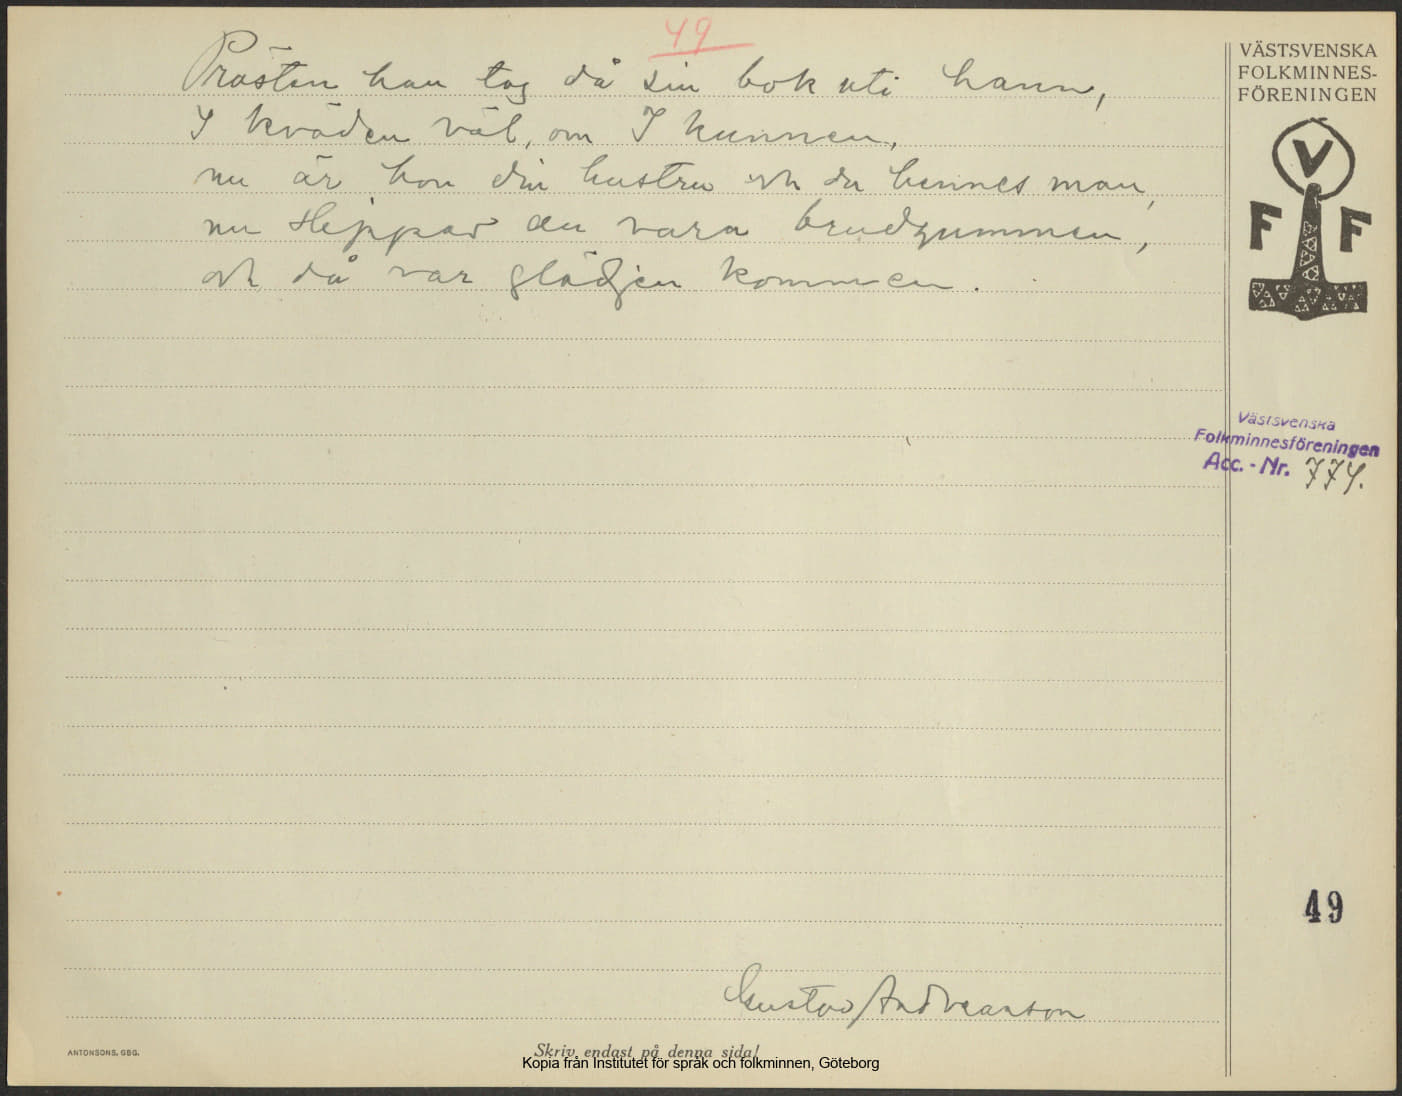 49
Prästen han tog då sin bok uti hann,
I kväden väl, om I kunnen,
nu är hon din hustru och du hennes man,
nu sleppar du vara brudgummen,
och då var glädjen kommen.
VÄSTSVENSKA
FOLKMINNES-
FÖRENINGEN
V
F F
Västsvenska
Folkminnesföreningen
Acc. - Nr. 774.
49
Gustav Andreasson
ANTONSONS, GBG.
Skriv endast på denna sida!
Kopia från Institutet för språk och folkminnen, Göteborg